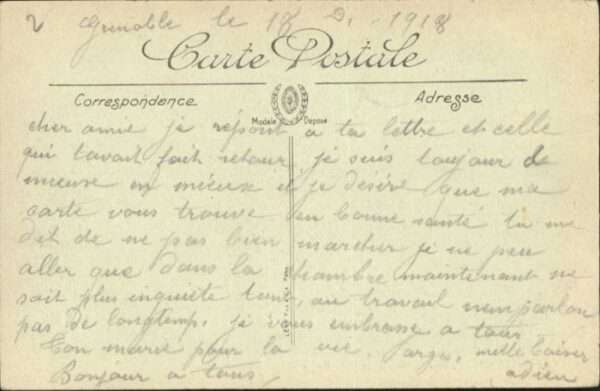 2 Grenoble le 18 D. 1918
Carte Postale
Correspondence
Adresse
Modèle Déposé
cher amie je répont a ta lettre et celle
qui tavait fait retour, je suis toujour de
mieuse en mieux et je désire que ma
carte vous trouve en bonne santé tu me
dit de ne pas bien marcher je ne peu
aller que dans la chambre maintenant ne
soit plus inquiète au travail nem parlon
pas de longtemp. je vous embrasse a tous
Ton marie pour la vie. mille baiser
Bonjour a tous, adieu